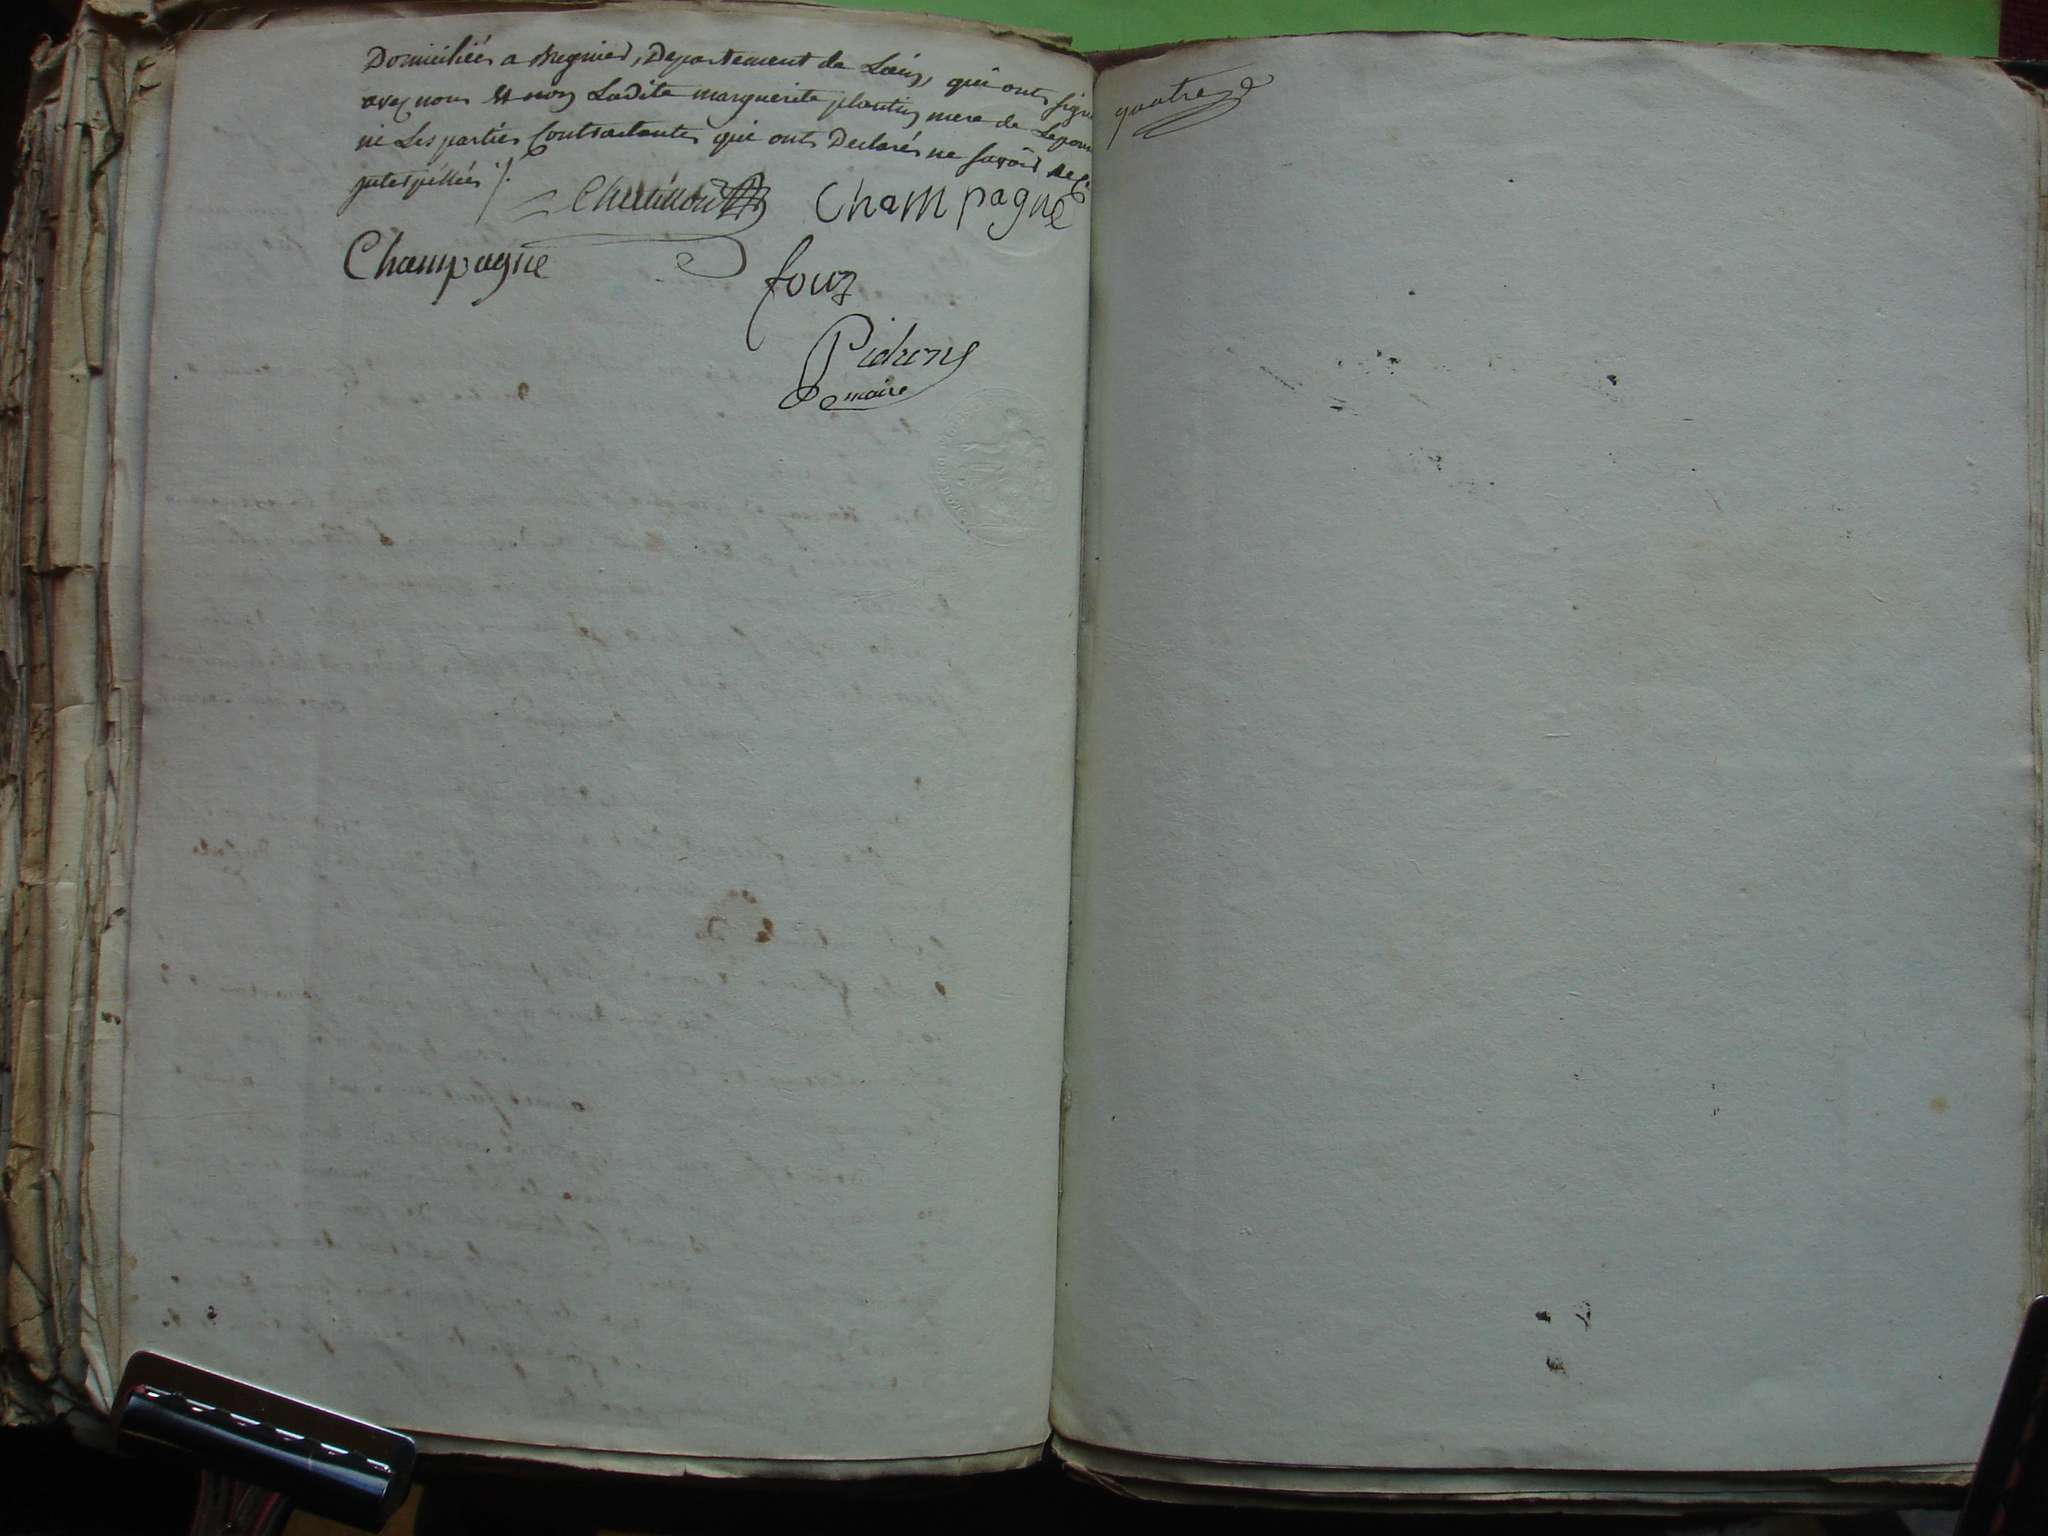 Domiciliés a Regnied, Departement de Lain, qui ont signé
avec nous et non Ladite marguerite plantin mere de Lepoux
ni Les parties Contractantes qui ont Declarés ne savoir de Ce
jnterpéllées ./.
Champagne
Champagne
four
Pichon
maire
quatre